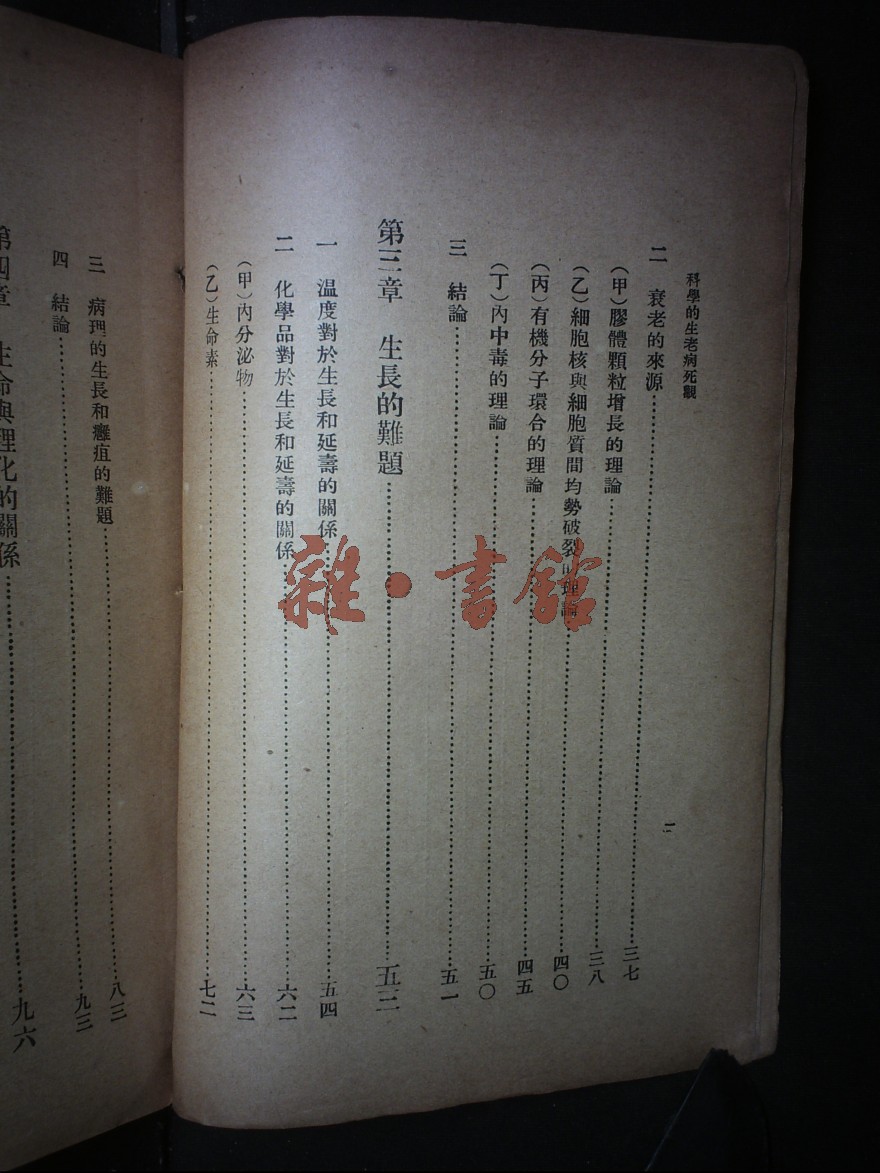 科學的生老病死觀
二 衰老的來源…………三七
(甲)膠體顆粒增長的理論…………三八
(乙)細胞核與細胞質間均勢破裂的理論…………四〇
(丙)有機分子環合的理論…………四五
(丁)內中毒的理論…………五〇
三 結論…………五一
第三章 生長的難題…………五三
一 溫度對於生長和延壽的關係…………五四
二 化學品對於生長和延壽的關係…………六二
(甲)內分泌物…………六三
(乙)生命素…………七二
二
三 病理的生長和癰疽的難題…………八三
四 結論…………九三
第四章 生命與理化的關係…………九六
雜·書館